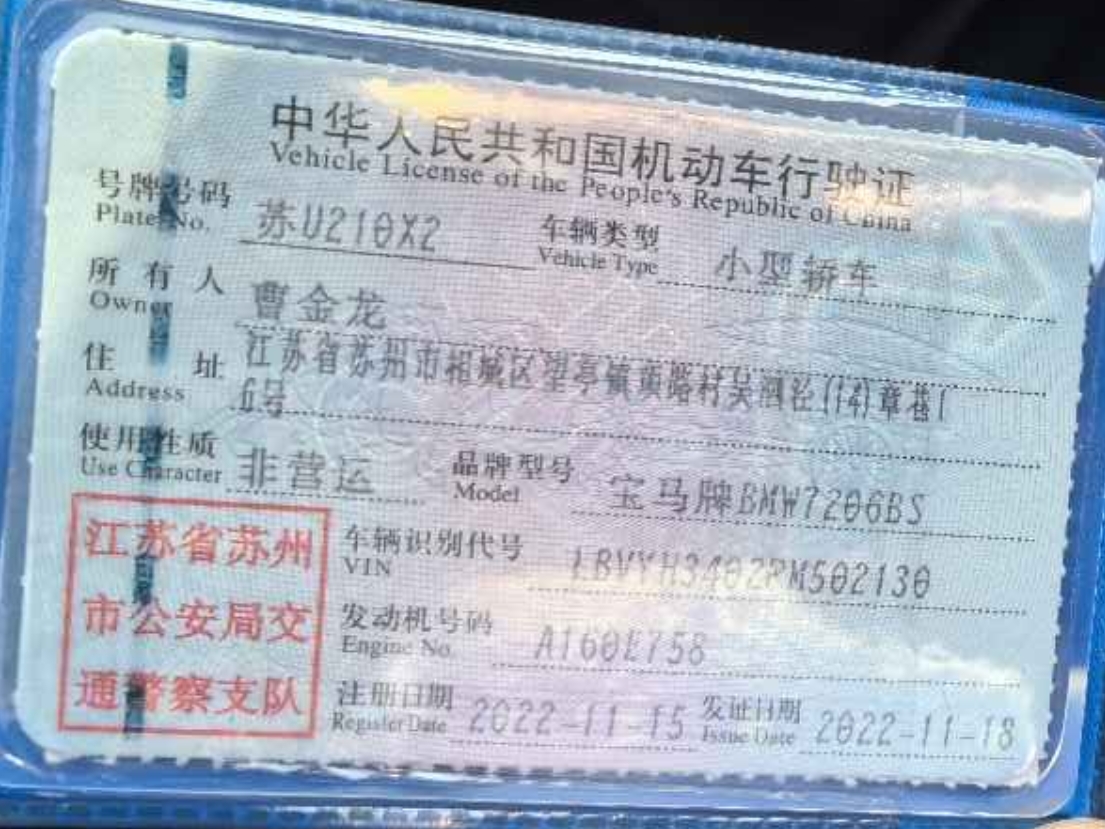 中华人民共和国机动车行驶证
Vehicle License of the People's Republic of China
号牌号码 苏U210X2 车辆类型 小型轿车
Plate No. Vehicle Type
所有人 曹金龙
Owner
住址 江苏省苏州市相城区望亭镇项路村吴泗泾(14)章巷1
Address 6号
使用性质 非营运 品牌型号 宝马牌BMW7206BS
Use Character Model
江苏省苏州
市公安局交
通警察支队
车辆识别代号
VIN LBVYH3402RM502130
发动机号码
Engine No. A160E758
注册日期 2022-11-15 发证日期 2022-11-18
Register Date Issue Date